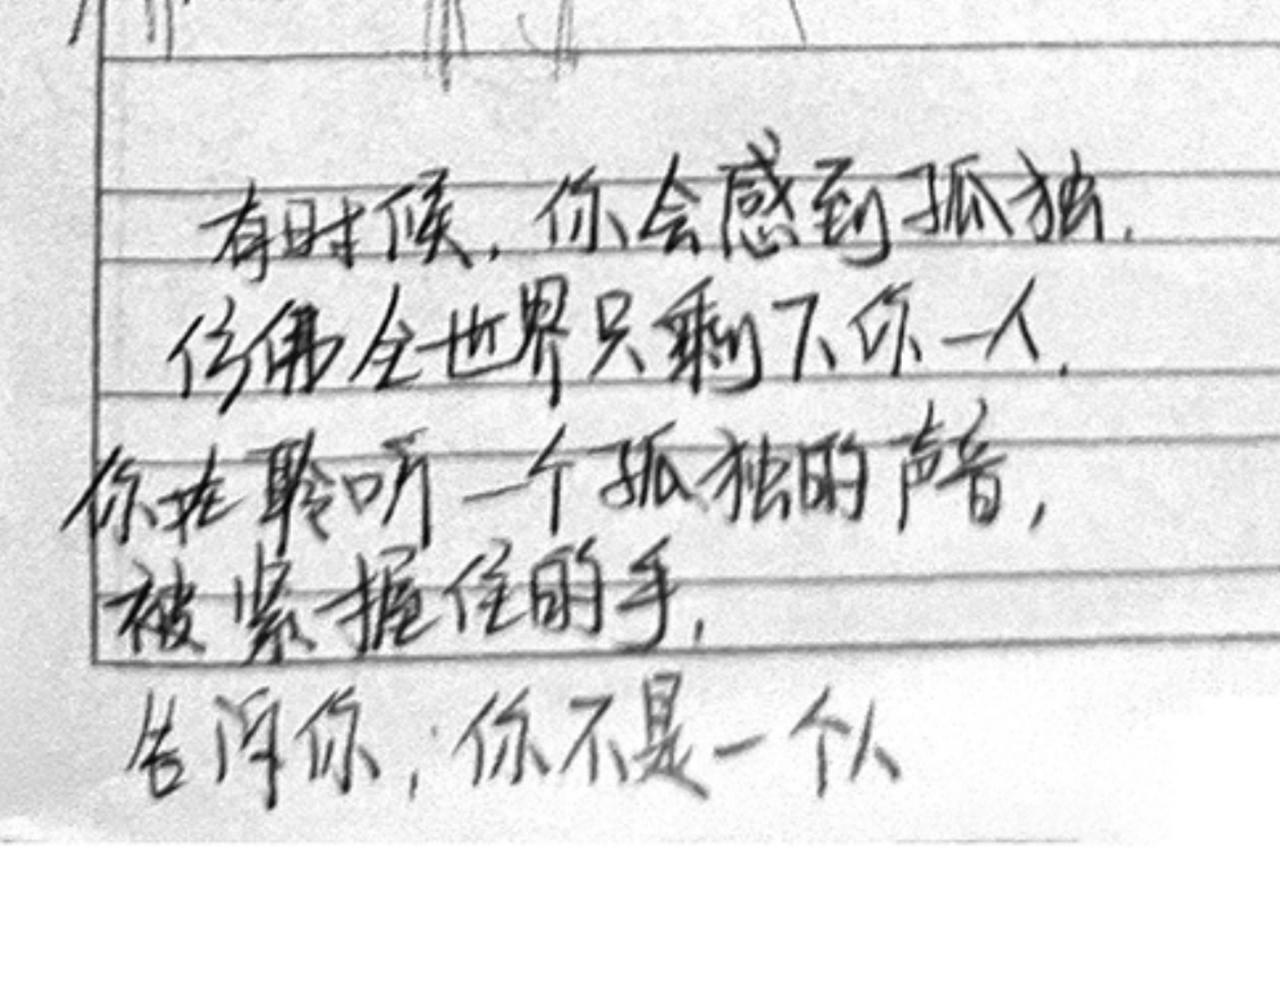 有时候,你会感到孤独.
仿佛全世界只剩下你一人.
你在聆听一个孤独的声音,
被紧握住的手,
告诉你,你不是一个人